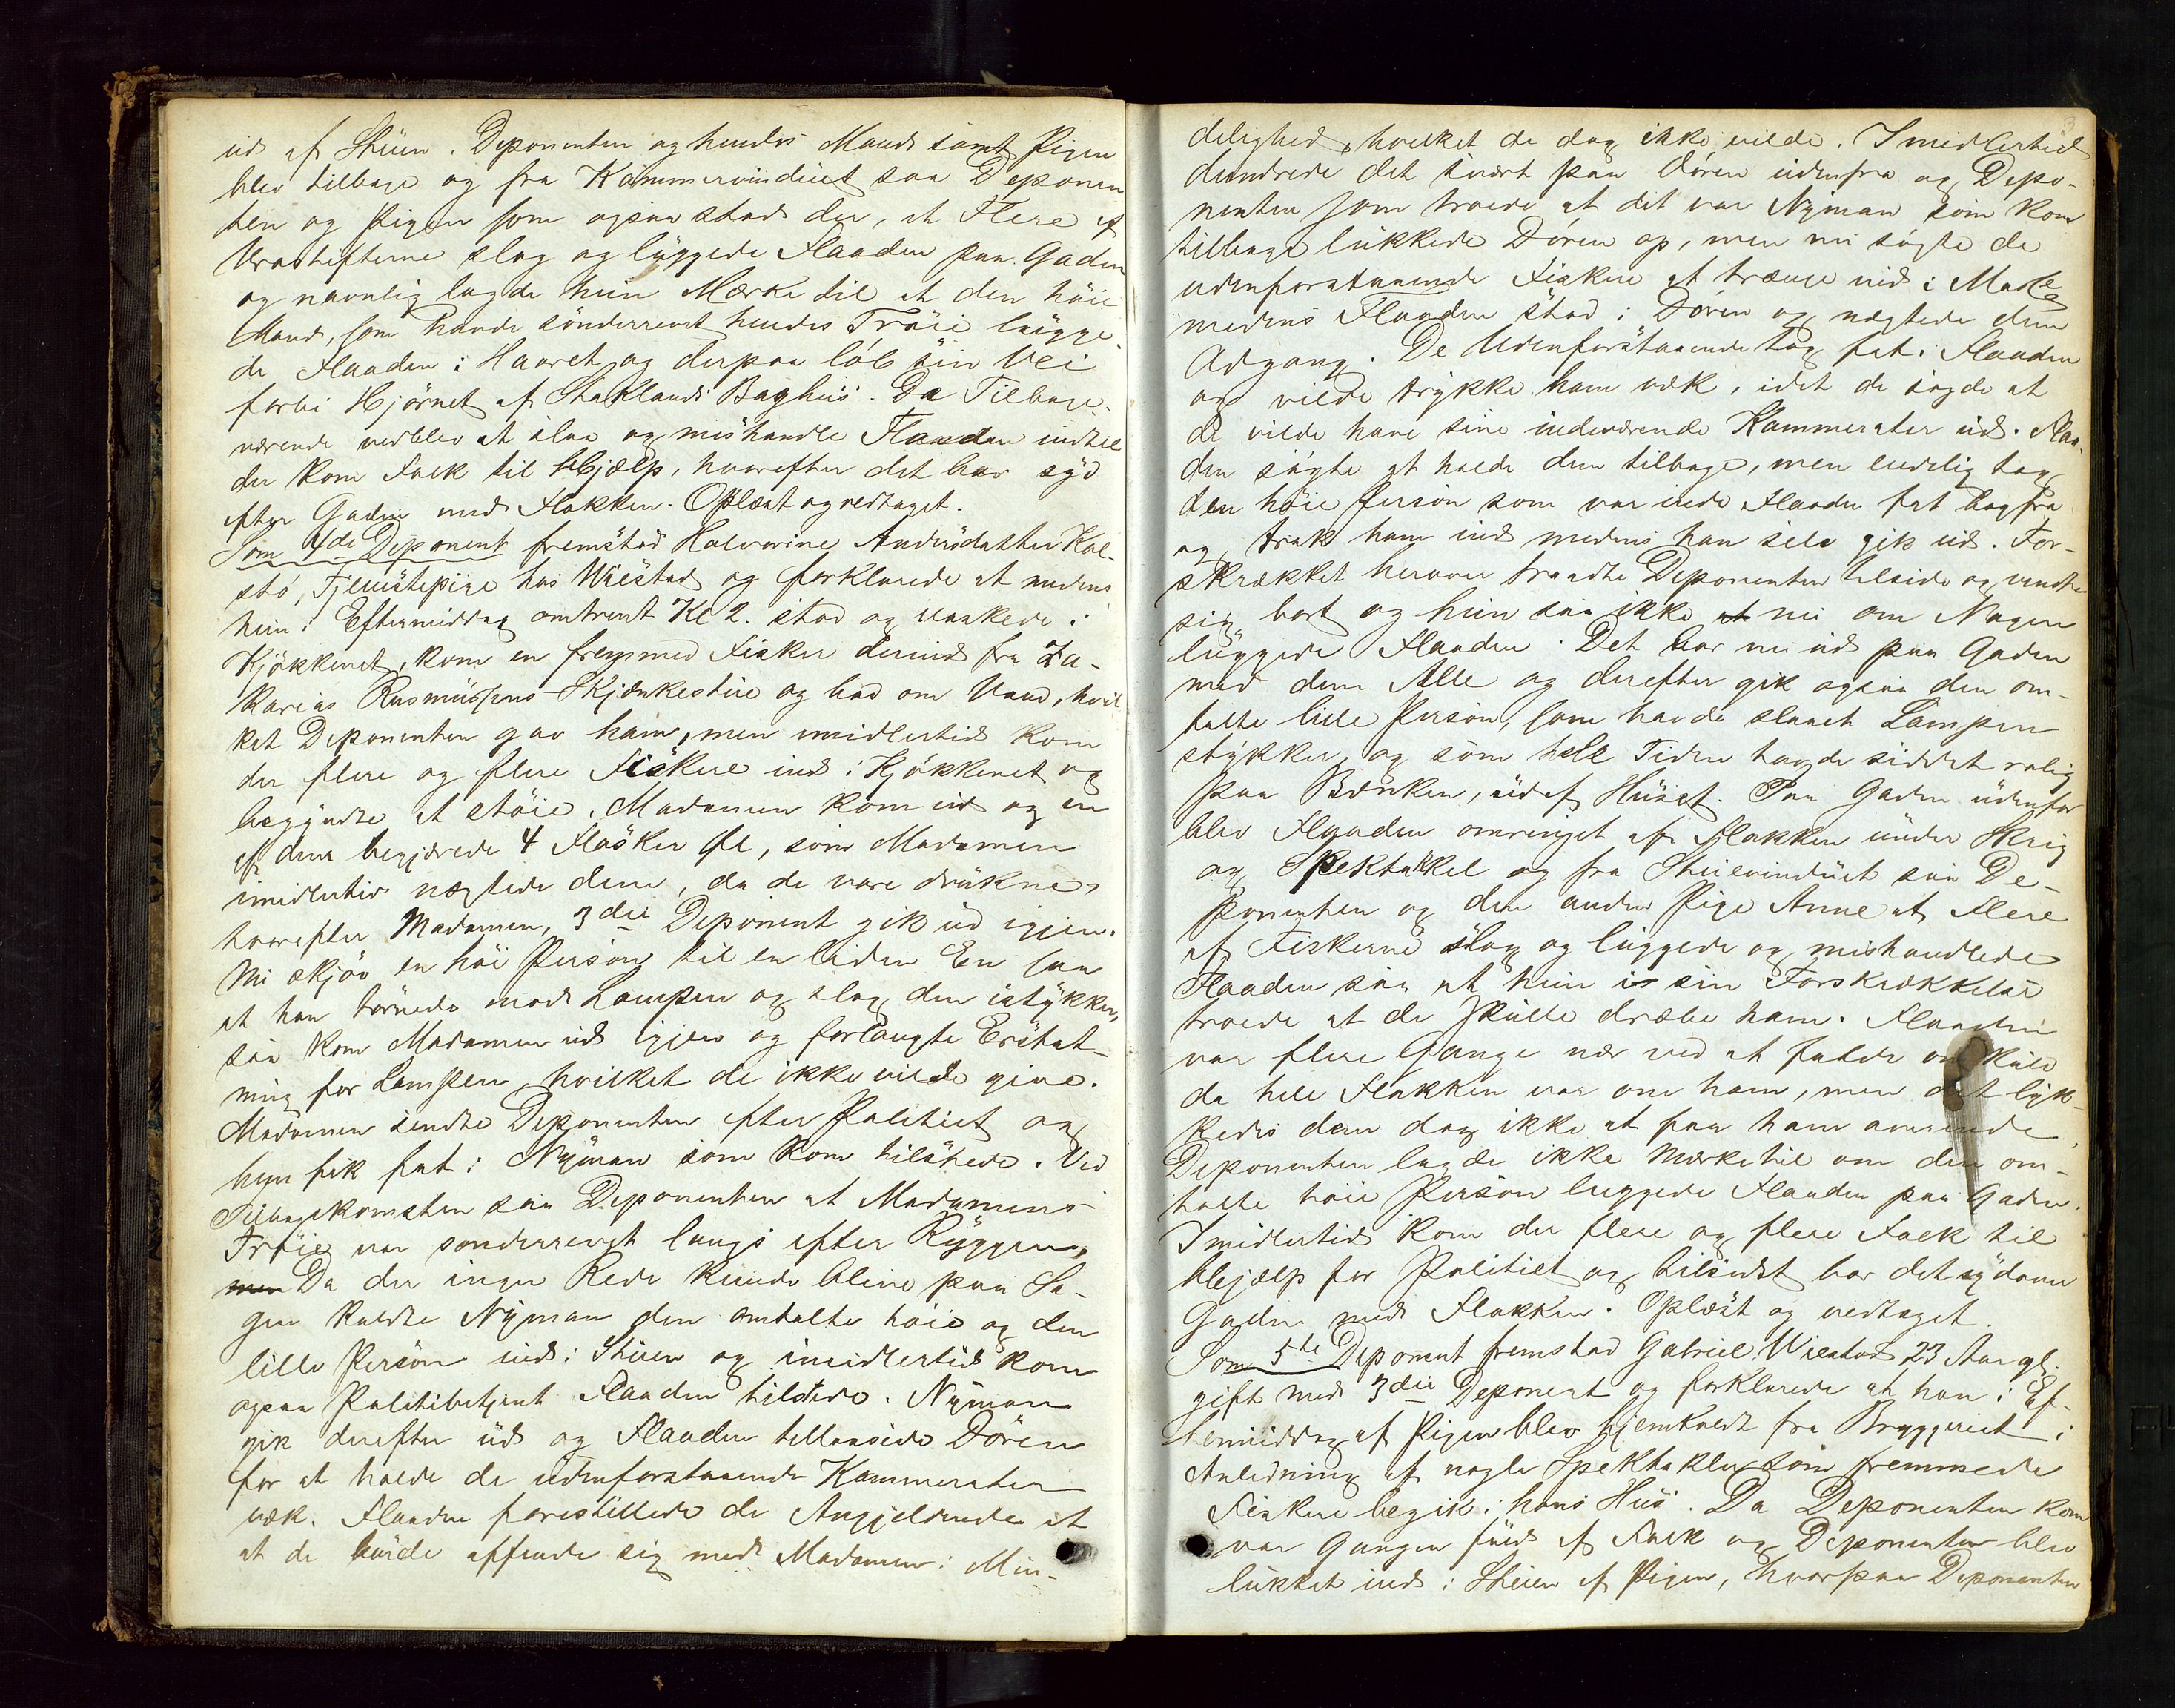 ud af Stuen. Deponenten og hendes Mand samt Pigen
blev tilbage og fra Kammervinduet saa Deponen
ten og Pigen som ogsaa stod der, at Flere af
Urostifterne slog og luggede Flaaden paa Gaden
og navnlig lagde hun Mærke til at den höie
Mand, som havde sönderrevet hendes Tröie lugge
de Flaaden i Haaret og derpaa löb sin Vei
forbi Hjörnet af Staklands Baghus. De Tilbage-
værende vedblev at slaa og mishandle Flaaden indtil
der kom Folk til Hjælp, hvorefter det bar syd
efter Gaden med Flokken. Oplæst og vedtaget.
Som 4de Deponent fremstod Halvorine Andersdatter Kol-
stö, Tjenestepige hos Wiestad og forklarede at medens
hun i Eftermiddag omtrent Kl 2. stod og vaskede i
Kjökkenet, kom en fremmed Fisker derind fra Za-
karias Rasmussens Skjænkestue og bad om Vand, hvil
ket Deponenten gav ham, men imidlertid kom
der flere og flere Fiskere ind i Kjökkenet og
begyndte at stöie. Madamen kom ud og en
af dem begjærede 4 Flasker Øl, som Madamen
imidlertid nægtede dem, da de vare drukne,
hvorefter Madamen, 3die Deponent gik ud igjen.
Nu skjöv en höi Person til en liden En saa
at han törnede mod Lampen og slog den istykker,
saa kom Madamen ud igjen og forlangte Erstat-
ning for Lampen, hvilket de ikke vilde give.
Madamen sendte Deponenten efter Politiet og
hun fik fat i Nyman som kom tilstede. Ved
Tilbagekomsten saa Deponenten at Madamens
Tröie var sönderrevet langs efter Ryggen.
men Da der ingen Rede kunde blive paa Sa-
gen kaldte Nyman den omtalte höie og den
lille Person ind i Stuen og imidlertid kom
ogsaa Politibetjent Flaaden tilstede. Nyman
gik derefter ud og Flaaden tillaasede Dören
for at holde de udenforstaaende Kammerater
væk. Flaaden forestillede de Angjeldende at
at de burde affinde sig med Madamen i Min-
delighed, hvilket de dog ikke vilde. Imidlertid
dundrede det svært paa Dören udenfra og Depo-
nenten som troede at det var Nyman som kom
tilbage lukkede Dören op, men nu sögte de
udenforstaaende Fiskere at trænge ind i Masse
medens Flaaden stod i Dören og nægtede dem
Adgang. De Udenforstaaende tog fat i Flaaden
og vilde trykke ham væk, idet de sagde at
de vilde have sine indeværende Kammerater ud. Flaa-
den sögte at holde dem tilbage, men endelig tog
den höie Person som var inde Flaaden fat bagfra
og trak ham ind medens han selv gik ud. For-
skrækket herover traadte Deponenten tilside og vendte
sig bort og hun saa ikke at nu om Nogen
luggede Flaaden. Det bar nu ud paa Gaden
med dem Alle og derefter gik ogsaa den om-
talte lille Person, som havde slaaet Lampen
stykker og som hele Tiden havde siddet rolig
paa Bænken, ud af Huset. Paa Gaden udenfor
blev Flaaden omringet af Flokken under Skrig
og Spektakkel og fra Stuevinduet saa De-
ponenten og den anden Pige Anne at Flere
af Fiskerne slog og luggede og mishandlede
Flaaden saa at hun i sin Forskrækkelse
troede at de skulde dræbe ham. Flaaden
var flere Gange nær ved at falde om kuld
da hele Flokken var om ham, men det lyk-
kedes dem dog ikke at faa ham omende.
Deponenten lagde ikke Mærke til om den om-
talte höie Person luggede Flaaden paa Gaden.
Imidlertid kom der flere og flere Folk til
Hjælp for Politiet og tilsidst bar det sydover
Gaden med Flokken. Oplæst og vedtaget.
Som 5te Deponent fremstod Gabriel Wiestad 23 Aar gl.
gift med 3die Deponent og forklarede at han i Ef-
termiddag af Pigen blev hjemkaldt fra Bryggeriet i
Anledning af nogle Spektakler som fremmede
Fiskere begik i hans Hus. Da Deponenten kom
var Gangen fuld af Folk og Deponenten blev
lukket ind i Stuen af Pigen, hvorpaa Deponenten